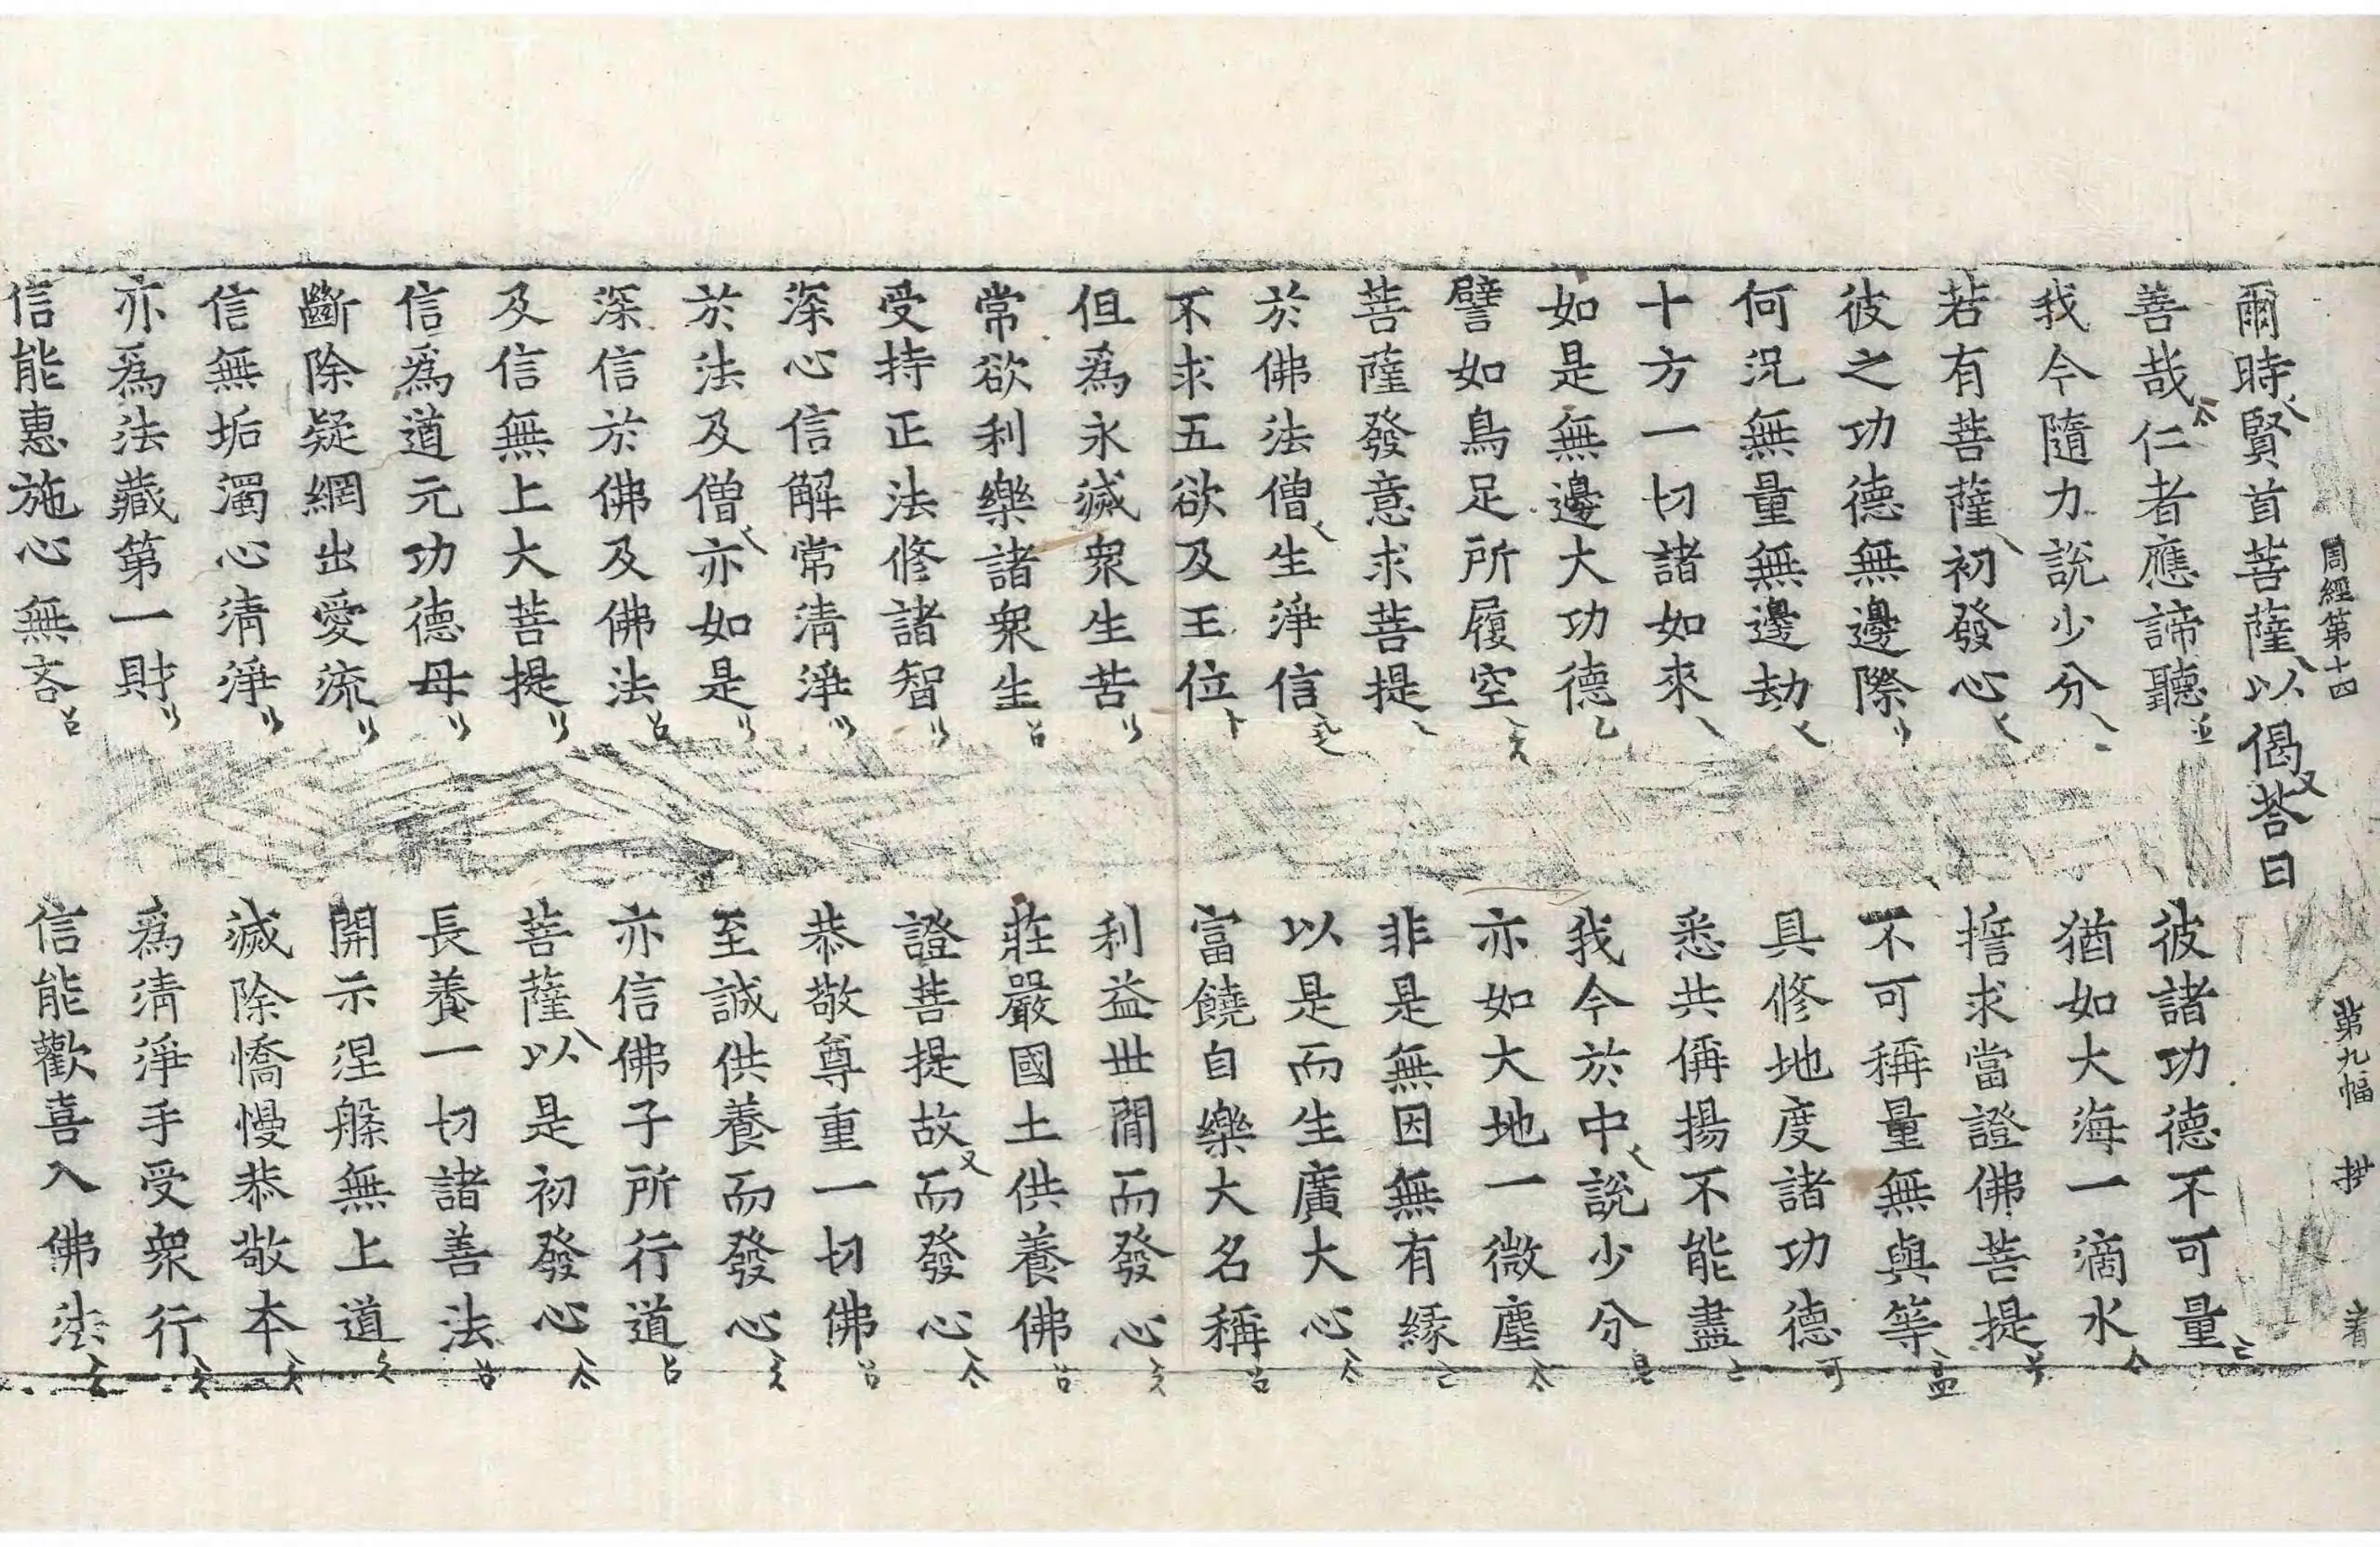 周經第十四 第九幅 着
爾時賢首菩薩以偈荅曰
善哉仁者應諦聽 彼諸功德不可量
我今隨力說少分 猶如大海一滴水
若有菩薩初發心 誓求當證佛菩提
彼之功德無邊際 不可稱量無與等
何況無量無邊劫 具修地度諸功德
十方一切諸如來 悉共稱揚不能盡
如是無邊大功德 我今於中說少分
譬如鳥足所履空 亦如大地一微塵
菩薩發意求菩提 非是無因無有緣
於佛法僧生淨信 以是而生廣大心
不求五欲及王位 富饒自樂大名稱
但爲永滅衆生苦 利益世間而發心
常欲利樂諸衆生 莊嚴國土供養佛
受持正法修諸智 證菩提故而發心
深心信解常清淨 恭敬尊重一切佛
於法及僧亦如是 至誠供養而發心
深信於佛及佛法 亦信佛子所行道
及信無上大菩提 菩薩以是初發心
信爲道元功德母 長養一切諸善法
斷除疑網出愛流 開示涅槃無上道
信無垢濁心清淨 滅除憍慢恭敬本
亦爲法藏第一財 爲清淨手受衆行
信能惠施心無吝 信能歡喜入佛法